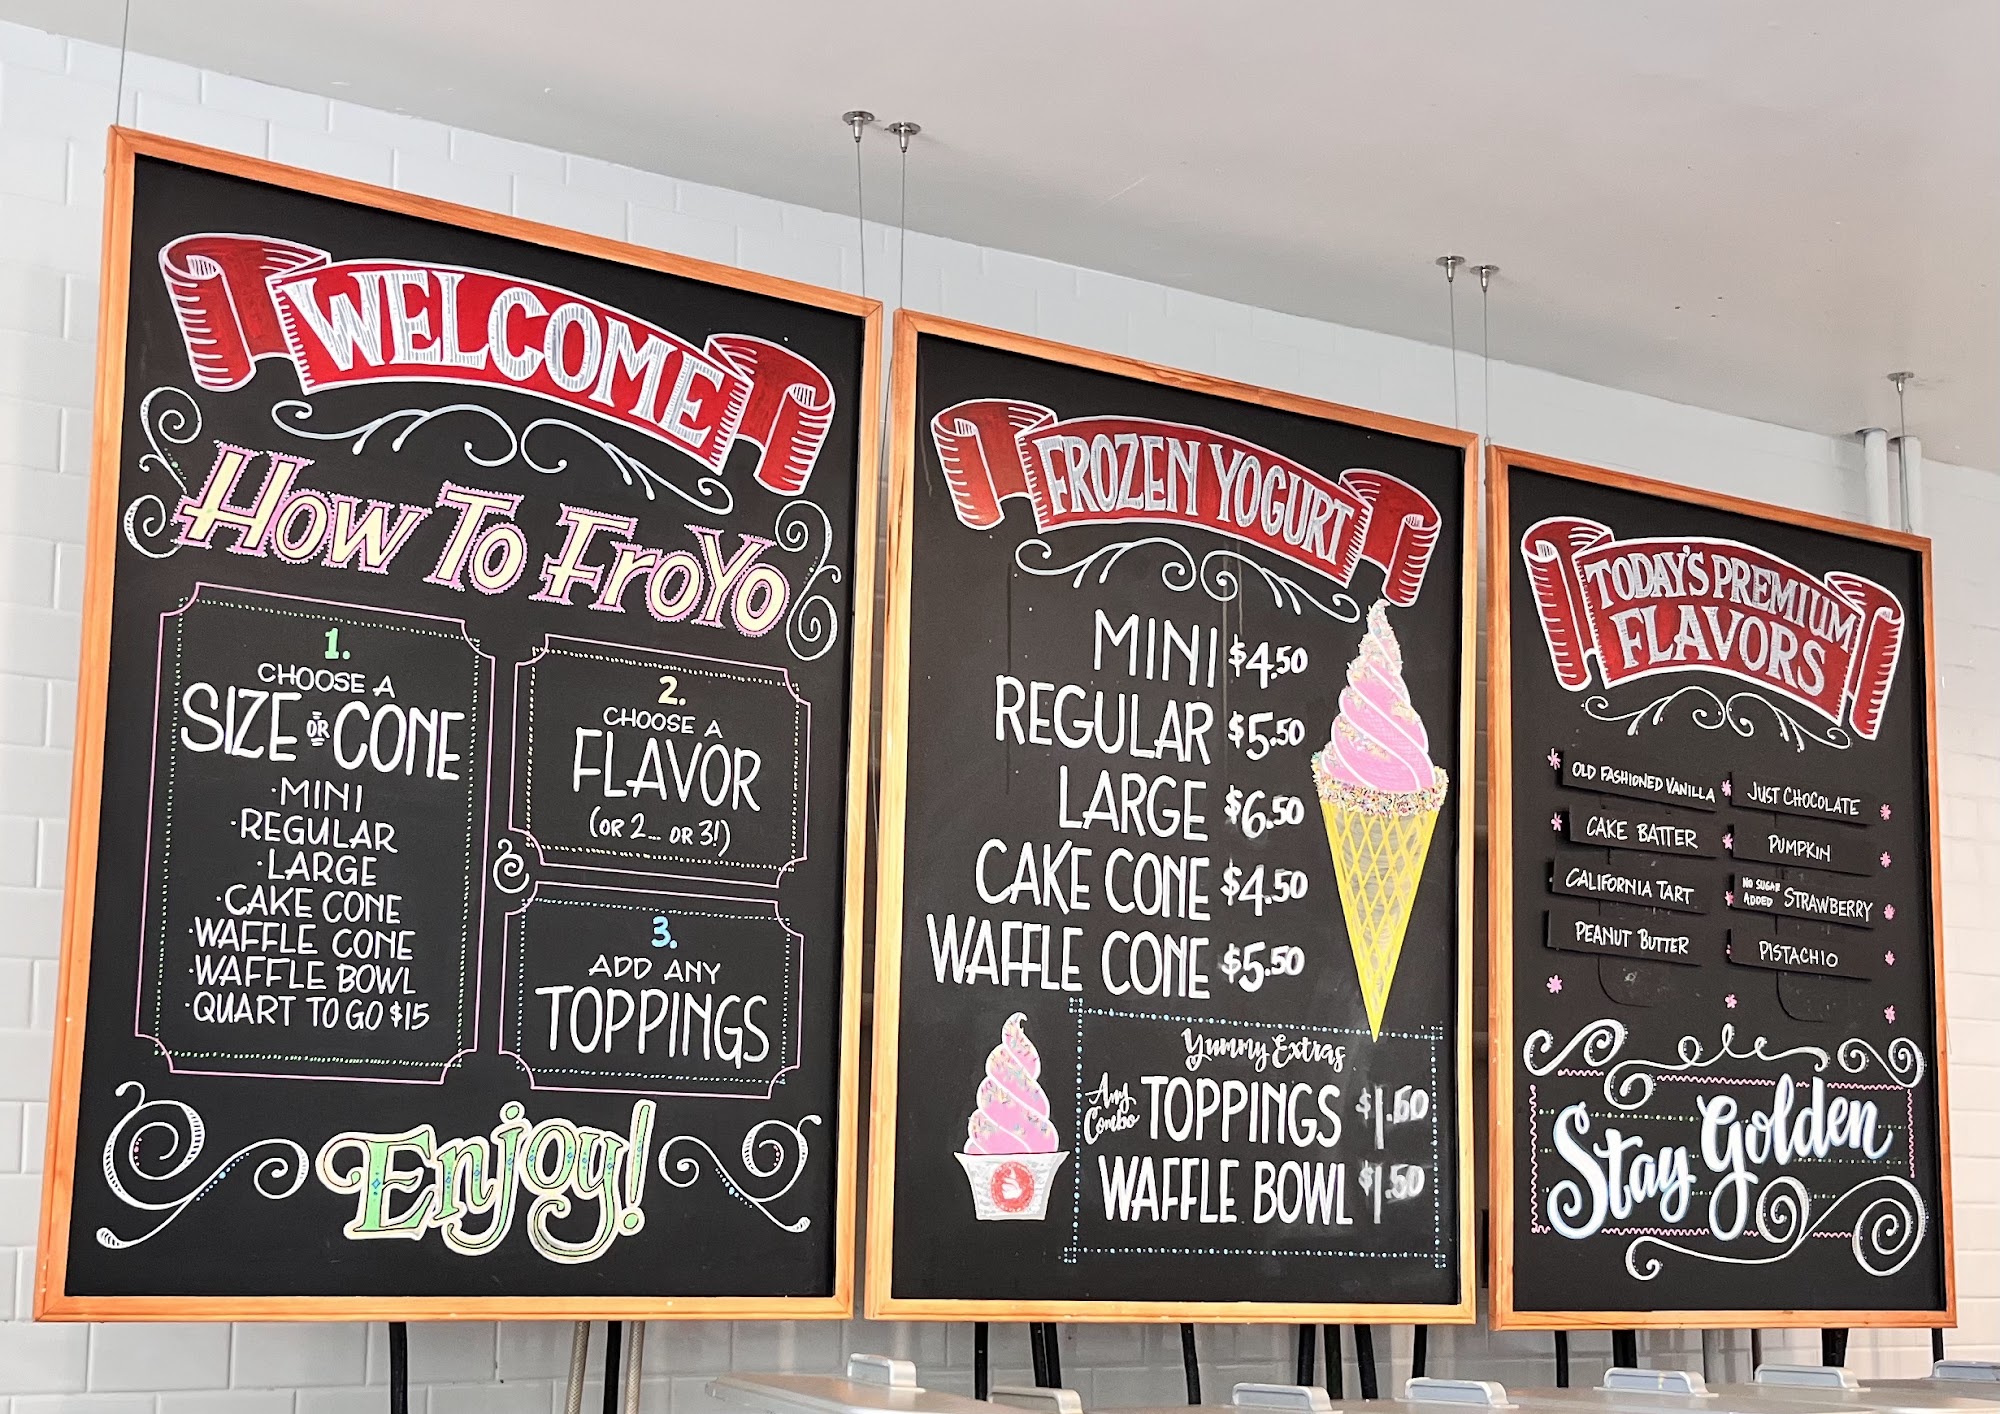 WELCOME
How To FroYo
1.
CHOOSE A
SIZE OR CONE
·MINI
·REGULAR
·LARGE
·CAKE CONE
·WAFFLE CONE
·WAFFLE BOWL
·QUART TO GO $15
2.
CHOOSE A
FLAVOR
(OR 2... OR 3!)
3.
ADD ANY
TOPPINGS
Enjoy!
FROZEN YOGURT
MINI $4.50
REGULAR $5.50
LARGE $6.50
CAKE CONE $4.50
WAFFLE CONE $5.50
Yummy Extras
Any Combo TOPPINGS $1.50
WAFFLE BOWL $1.50
TODAY'S PREMIUM
FLAVORS
OLD FASHIONED VANILLA
CAKE BATTER
CALIFORNIA TART
PEANUT BUTTER
JUST CHOCOLATE
PUMPKIN
NO SUGAR ADDED STRAWBERRY
PISTACHIO
Stay Golden